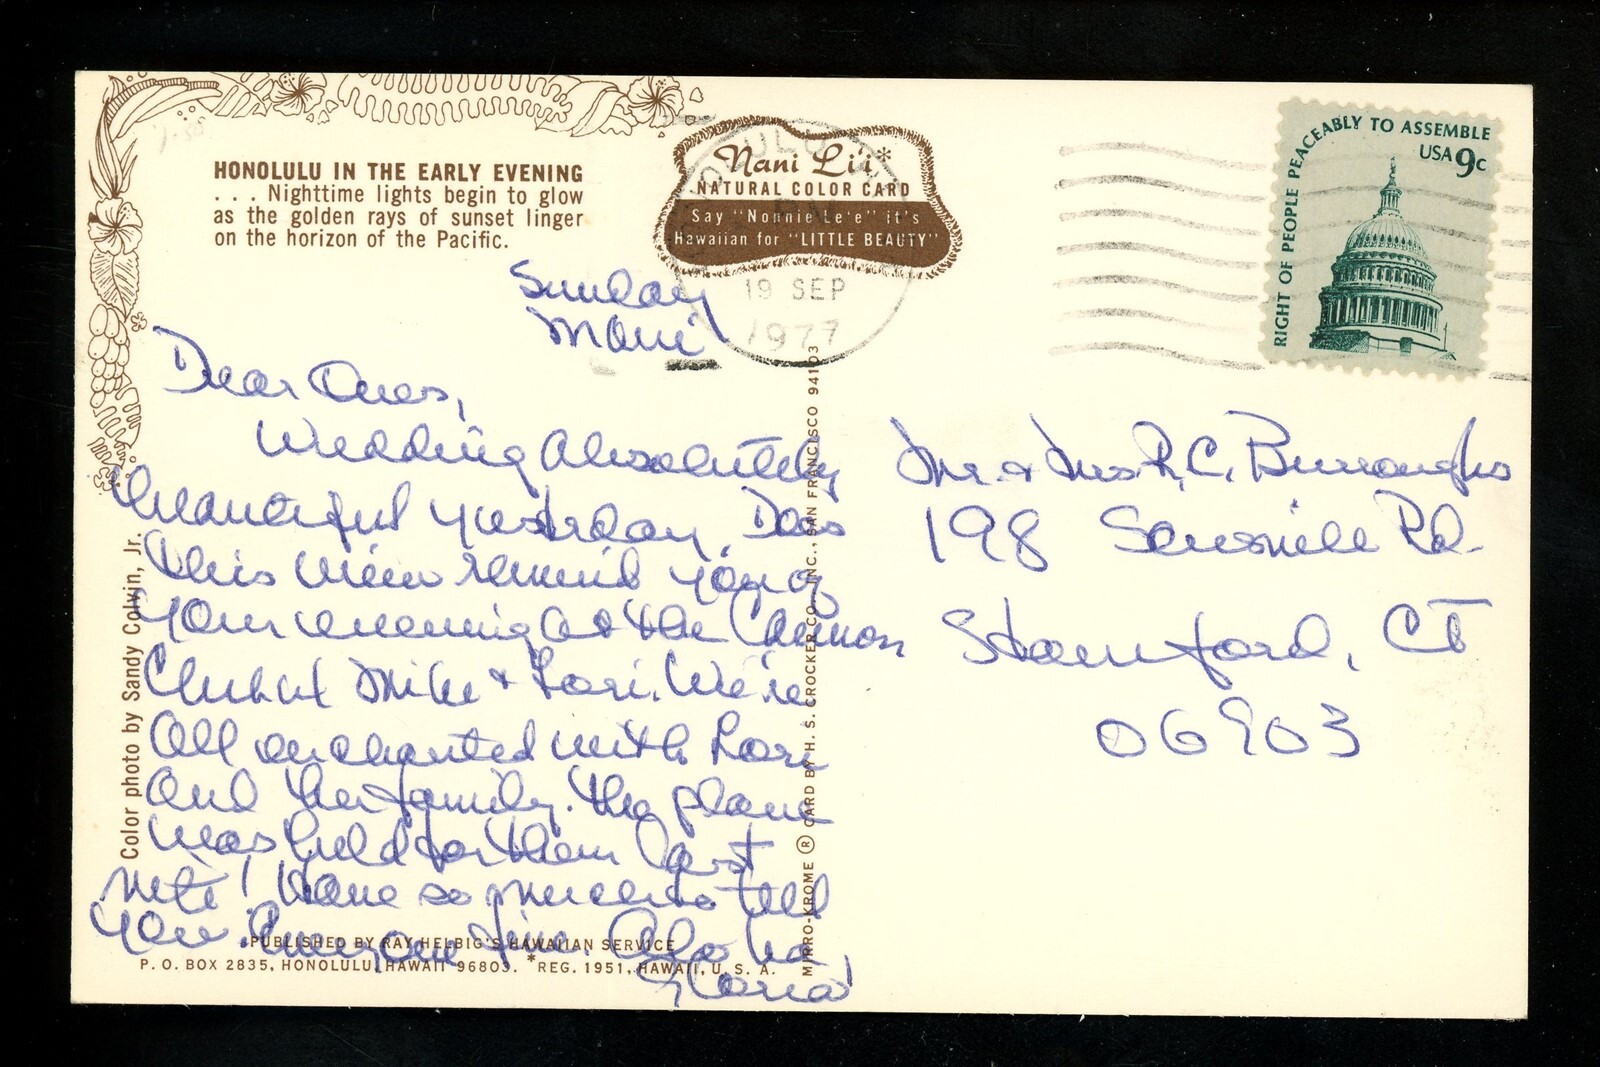 HONOLULU IN THE EARLY EVENING
. . . Nighttime lights begin to glow
as the golden rays of sunset linger
on the horizon of the Pacific.
Nani Li'i*
NATURAL COLOR CARD
Say "Nonnie Le'e" it's
Hawaiian for "LITTLE BEAUTY"
HONOLULU
PM
19 SEP
1977
RIGHT OF PEOPLE PEACEABLY TO ASSEMBLE
USA 9c
Sunday
Maui
Dear Ones,
Wedding absolutely
beautiful yesterday. Does
this view remind you of
your evening at the Cannon
Club at Mike & Lori. We're
all enchanted with Lori
and her family. The plane
was held for them last
nite! Have so much to tell
you. Everyone fine. Aloha,
Gloria
Mr. & Mrs R. C. Burroughs
198 Rd.
Stamford, CT
06903
Color photo by Sandy Colvin, Jr.
MIRRO-KROME ® CARD BY H. S. CROCKER CO. INC., SAN FRANCISCO 94103
PUBLISHED BY RAY HELBIG'S HAWAIIAN SERVICE
P. O. BOX 2835, HONOLULU, HAWAII 96803. *REG. 1951, HAWAII, U. S. A.